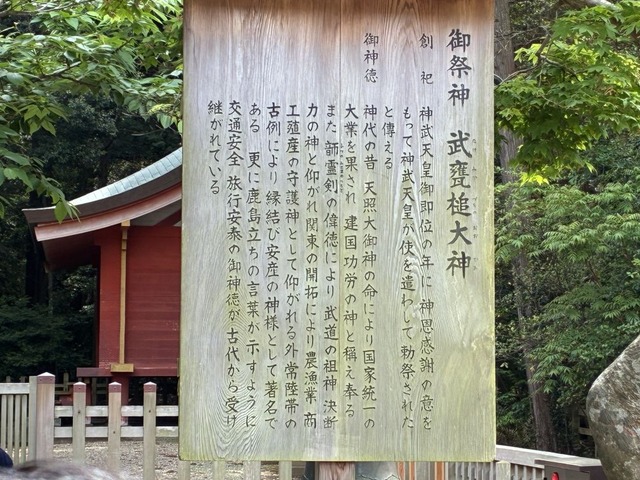 御祭神 武甕槌大神
創祀 神武天皇御即位の年に 神恩感謝の意を
もって神武天皇が使を遣わして勅祭された
と傳える
御神徳 神代の昔 天照大御神の命により国家統一の
大業を果され 建国功労の神と稱え奉る
また 韴霊剣の偉徳により 武道の祖神 決断
力の神と仰がれ 関東の開拓により農漁業 商
工殖産の守護神として仰がれる外 常陸帯の
古例により 縁結び安産の神様として著名で
ある 更に鹿島立ちの言葉が示すように
交通安全 旅行安泰の御神徳が古代から受け
継がれている